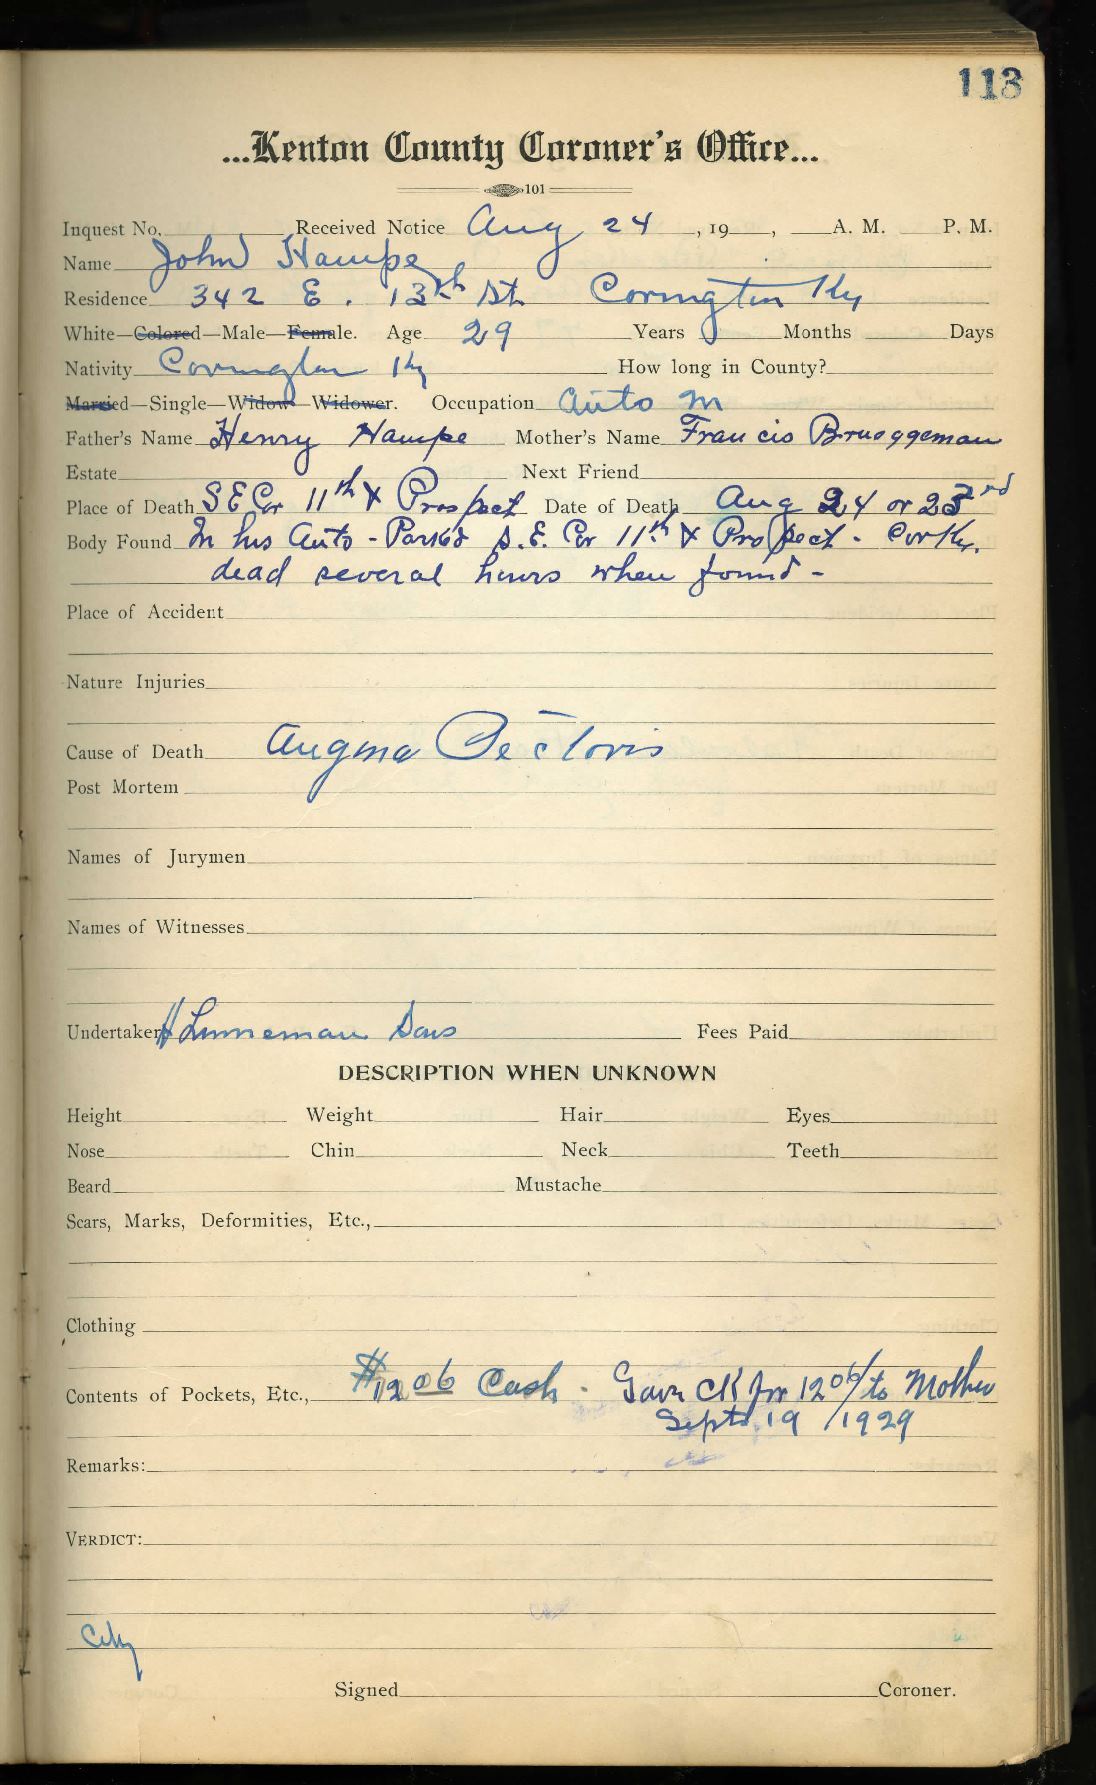 113
...Kenton County Coroner's Office...
101
Inquest No. Received Notice Aug 24, 19 , A. M. P. M.
Name John Hampe
Residence 342 E. 13th St Covington Ky
White—Colored—Male—Female. Age 29 Years Months Days
Nativity Covington Ky How long in County?
Married—Single—Widow—Widower. Occupation Auto M
Father's Name Henry Hampe Mother's Name Francis Brueggeman
Estate Next Friend
Place of Death S E Cor 11th & Prospect Date of Death Aug 24 or 23rd
Body Found In his Auto - Parked S. E. Cor 11th & Prospect - Cov Ky.
dead several hours when found -
Place of Accident
Nature Injuries
Cause of Death Angina Pectoris
Post Mortem
Names of Jurymen
Names of Witnesses
Undertaker H Linneman Sons Fees Paid
DESCRIPTION WHEN UNKNOWN
Height Weight Hair Eyes
Nose Chin Neck Teeth
Beard Mustache
Scars, Marks, Deformities, Etc.,
Clothing
Contents of Pockets, Etc., $12 06 Cash - Gave CK for 12 06/ to Mother
Sept. 19 / 1929
Remarks:
VERDICT:
City
Signed Coroner.